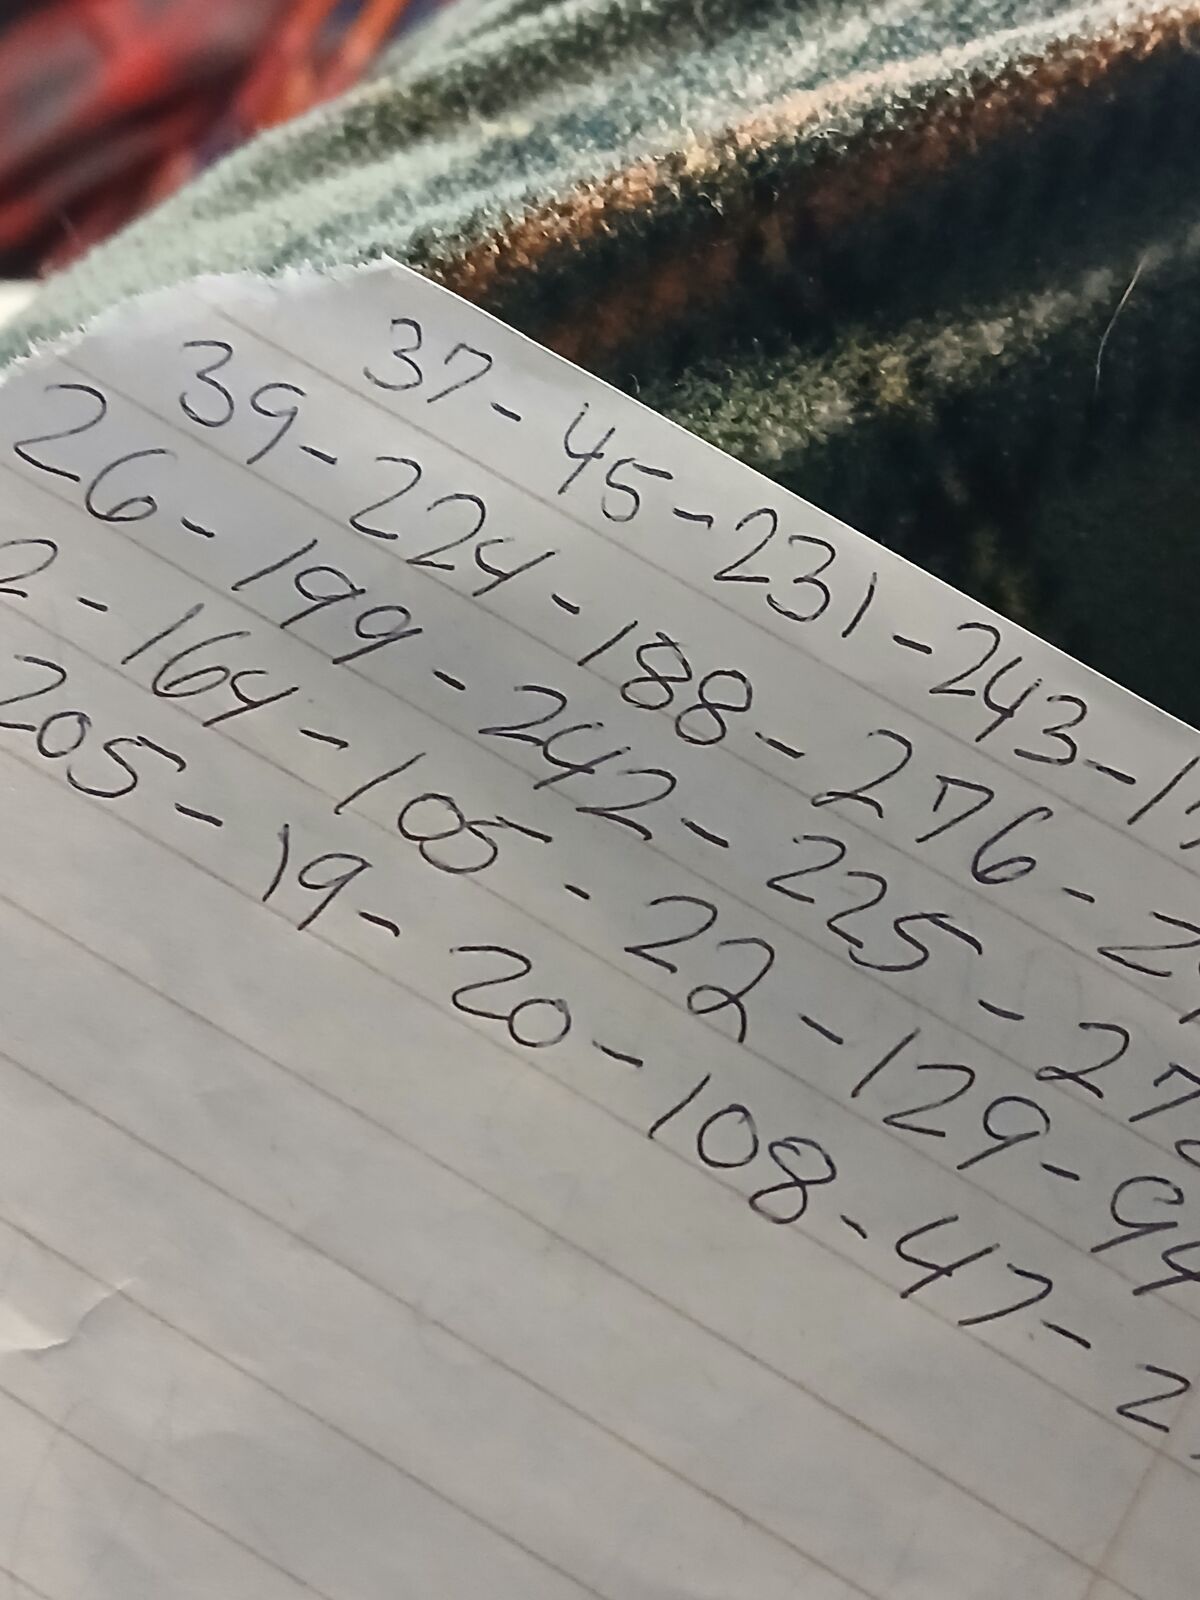 37-45-231-243-1
39-224-188-276-2
26-199-242-225-27
2-164-105-22-129-94
205-19-20-108-47-2